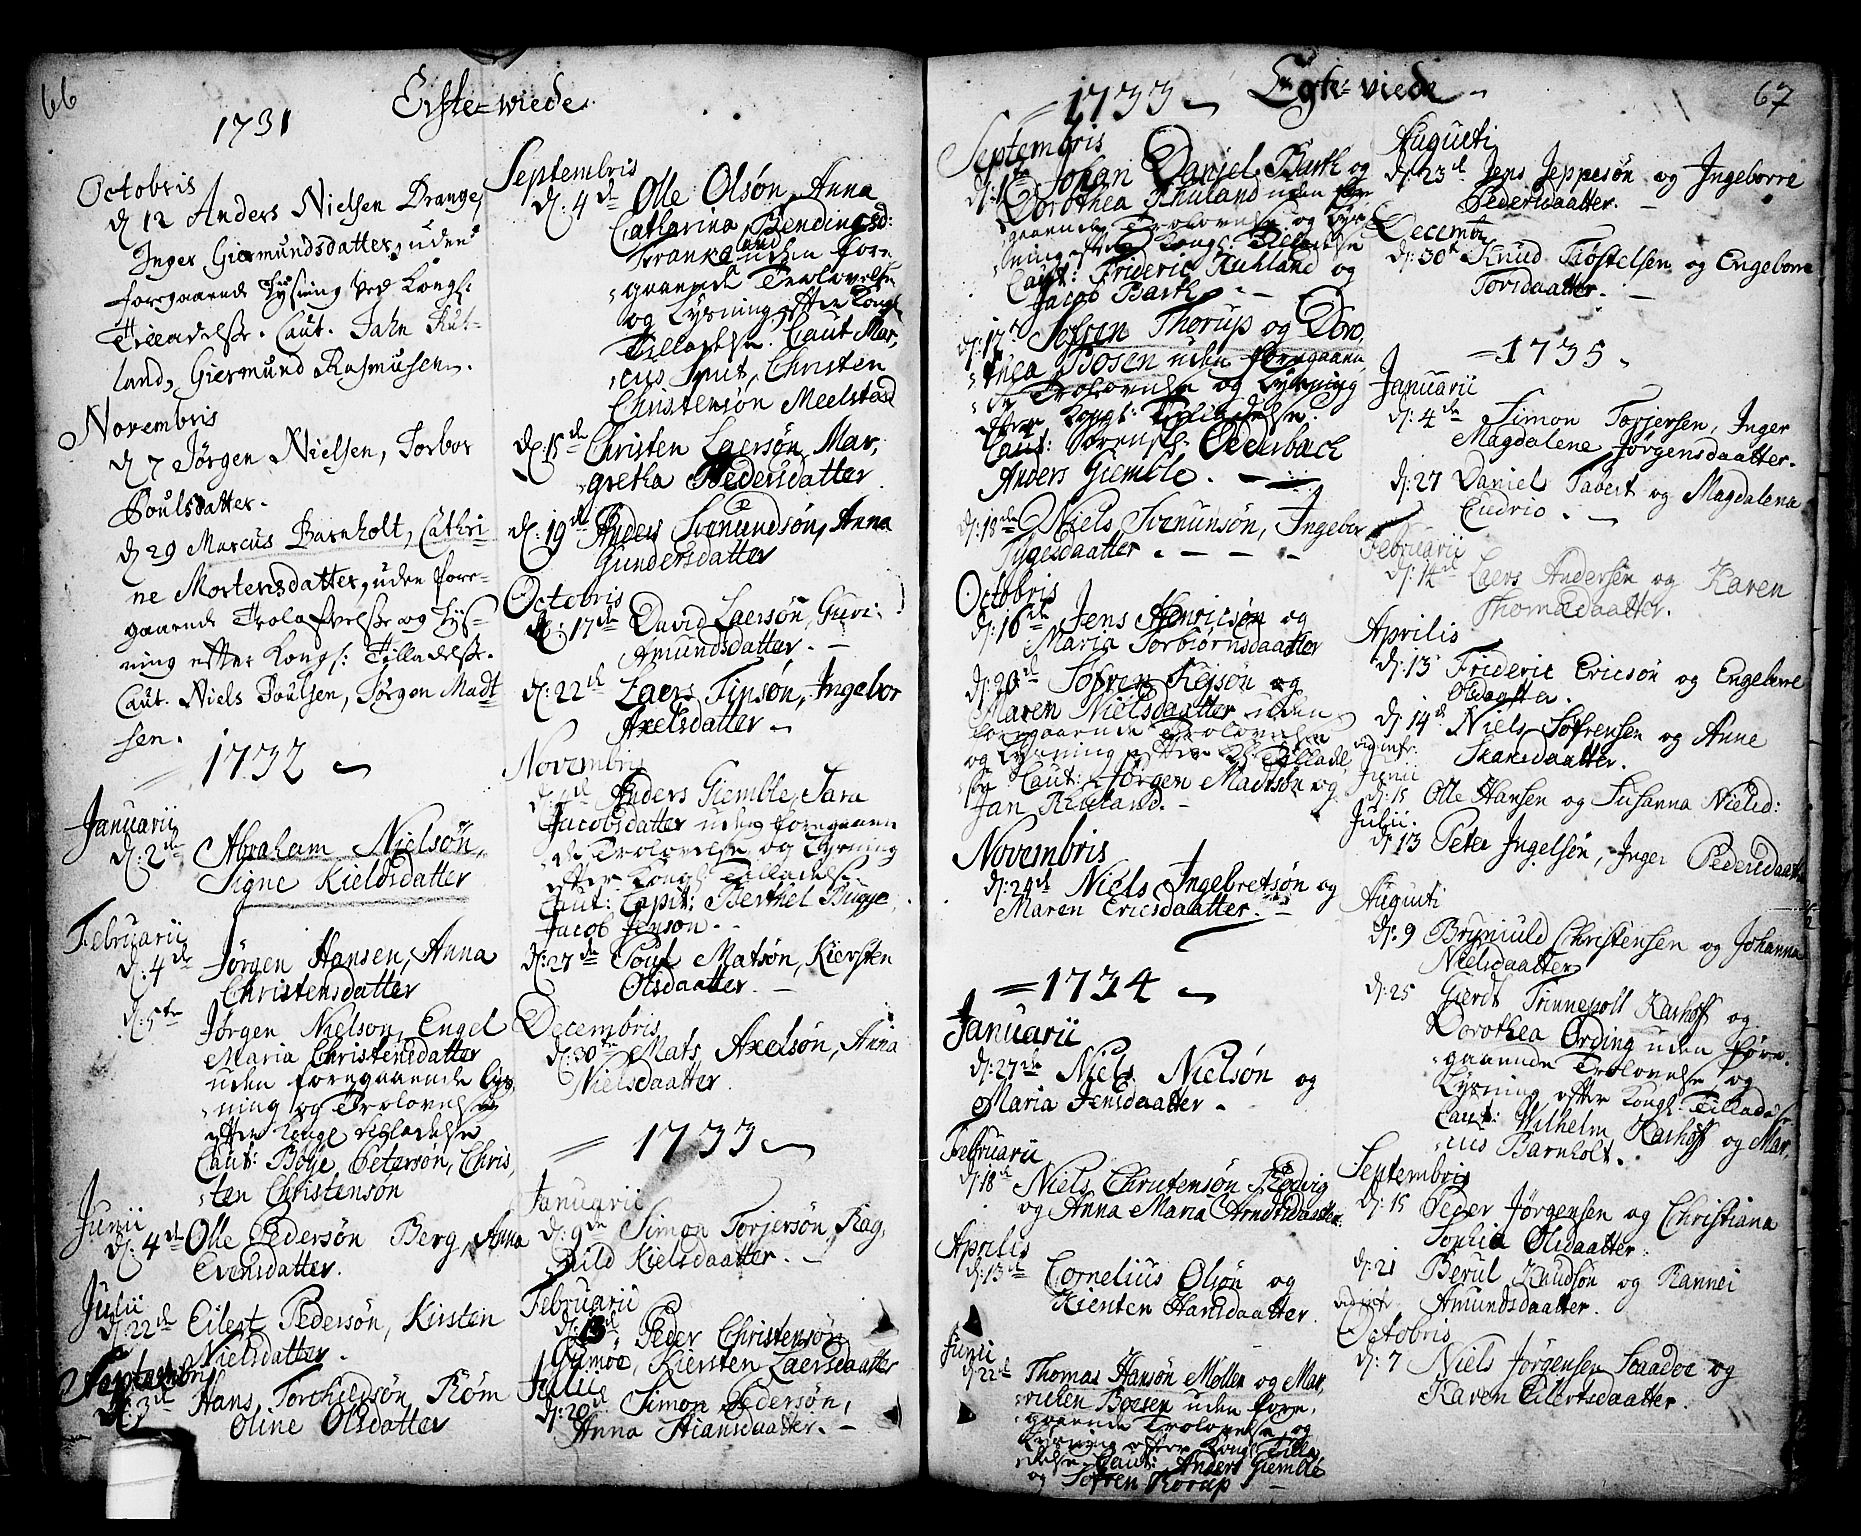 66
Ecste-wiede.
1731
Octobris
d 12 Anders Nielsen Drange,
Inger Giermundsdatter, uden
foregaaende Lysning Ved Kongl:
Tilladelse. Caut. Jahn Rut-
land, Giermund Rasmusen.
Novembris
d 7 Jørgen Nielsen, Torbor
Poulsdatter.
d 29 Marcus Barnholt, Cathri-
ne Mortensdatter, uden fore-
gaaende Trolofvelse og Lys-
ning efter Kongl: Tilladelse.
Caut. Niels Poulsen, Jørgen Madt
sen.
1732
Januarii
d. 2de Abraham Nielsøn,
Signe Kieldsdatter
Februarii
d. 4de Jørgen Hansen, Anna
Christensdatter
d. 5te Jørgen Nielson, Engel
Maria Christensdatter
uden foregaaende Lys-
ning og Trolovelse
efter Konge tilladelse
Caut: Boye Petersøn, Chris,
ten Christensøn
Junii
d. 4de Olle Pedersøn Berg, Anna
Evensdatter.
Julii
d. 22de Eilert Pedersøn, Kirsten
Nielsdatter.
Septembris
d. 3de Hans Torchildsøn Røm
Oline Olsdatter
Septembris
d. 4de Olle Olsøn, Anna
Catharina Bendingsd:
Franke uden fore
gaaende Trolovelse
og Lysning efter Kongl
Tilladelse. Caut Mar,
cus Smit, Christen
Christensøn Meelstad
d. 15de Christen Laersøn, Mar,
gretha Pedersdatter
d. 19de Anders Svenundsøn, Anna
Gundersdatter
Octobris
d. 17de David Laersøn, Guri
Amundsdatter. -
d. 22de Laers Tipsøn, Ingebor
Axelsdatter -
Novembris
Anders Giemble, Sara
Jacobsdatter uden foregaaen
de Trolovelse og Lysning
efter Kongl Tilladelse
Caut: Capit: Berthel Bugge,
Jacob Jenson.
d. 27de Poul Matsøn, Kiersten
Olsdaatter. -
Decembris
d. 30te Mats Axelsøn, Anna
Nielsdaatter.
1733
Januarii
d. 9de Simon Torjersøn, Rag,
nild Kielsdaatter. -
Februarii
d. 13 Peder Christensøn
Omoe, Kiersten Laersdaatter
Julii
d. 20de Simon Pedersøn,
Anna Stiansdaatter. -
67
1733 Egte-viede -
Septembris
d. 1te Johan Daniel Barth og
Dorothea Ruland uden for
gaaende Trolovelse og Lys
ning efter Kongl: Tilladelse
Caut: Frideric Ruhland og
Jacob Barth. -
d. 17de Sofren Thorup og Doro
thea Bosen uden foregaaen
de Trolovelse og Lysning
efter Kongl: Tilladelse.
Caut: Ederbach
Anders Giemble. -
d. 18de Niels Svenunsøn, Ingebor
Tygesdaatter. - - -
Octobris
d. 16de Jens Henricsøn og
Maria Torbiørnsdaatter
d. 20de Sofren Rejsøn og
Maren Nielsdaatter uden
foregaaende Trolovelse
og Lysning efter K: Tilladel
se Caut: Jørgen Madsøn og
Jan Ruland. -
Novembris
d. 24de Niels Ingebretsøn og
Maren Ericsdaatter. -
1734
Januarii
d. 27de Niels Nielsøn og
Maria Jensdaatter. -
Februarii
d. 18de Niels Christensøn Redvig
og Anna Maria Arndtsdaatter
Aprilis
d. 13de Cornelius Olsøn og
Kiersten Hansdaatter.
Junii
d. 22de Thomas Hansøn Møller og Mar,
Boesen uden fore,
gaaende Trolovelse og
Lysning efter Kongl Tilla
delse. Caut: Anders Giemble
og Sofren Thorup -
Augusti
d. 23de Jens Jeppesøn og Ingeborre
Pedersdaatter. -
Decemb
d. 30te Knud Tøstelsen og Engeborre
Torisdaatter. -
1735
Januarii
d. 4de Simon Torjersen, Inger
Magdalene Jørgensdaatter.
d. 27 Daniel Tabert og Magdalena
Eudrio. -
Februarii
d. 14de Laers Andersen og Karen
Thomædaatter.
Aprilis
d. 13 Frideric Ericsøn og Engeborre
Olsdaatter.
d. 14de Niels Sofrensen og Anne
Skansdaatter.
vid infr:
Junii
d. 15 Olle Hansen og Susanna Nielsd:
Julii.
d. 13 Peter Ingelsøn, Inger Pedersdaatter
Augusti
d. 9 Brynjuld Christensen og Johanna
Nielsdaatter
d. 25 Gierdt Trinnepoll Karhoff og
Dorothea Ording uden fore
gaaende Trolovelse, og
Lysning efter Kongl: Tilladelse
Caut: Wilhelm Karhoff og Mar,
cus Barnholt.
Septembris
d. 15 Peder Jørgensen og Christiana
Sophia Olsdaatter:
d. 21 Berul Knudsøn og Rannei
Amundsdaatter.
Octobris
d. 7 Niels Jørgensen Saadoe og
Karen Eilertsdaatter.